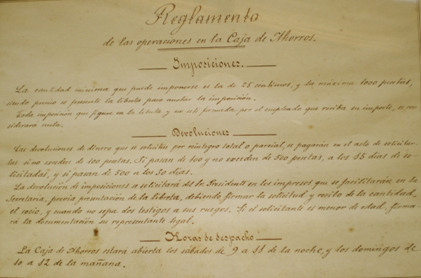 Reglamento
de las operaciones en la Caja de Ahorros.
Imposiciones.
La cantidad mínima que puede imponerse es la de 25 céntimos, y la máxima 1000 pesetas,
siendo preciso se presente la libreta para anotar la imposición.
Toda imposición que figure en la libreta y no esté firmada por el empleado que reciba su importe, se con-
siderará nula.
Devoluciones
Las devoluciones de dinero que se soliciten por reintegro total o parcial, se pagarán en el acto de solicitar-
las si no exceden de 100 pesetas. Si pasan de 100 y no exceden de 500 pesetas, a los 15 días de so-
licitadas, y si pasan de 500 a los 30 días.
La devolución de imposiciones se solicitará del Sr. Presidente en los impresos que se facilitarán en la
Secretaría, previa presentación de la libreta, debiendo firmar la solicitud y recibo de la cantidad,
el socio, y cuando no sepa dos testigos a sus ruegos. Si el solicitante es menor de edad, firma-
rá la documentación su representante legal.
Horas de despacho
La Caja de Ahorros estará abierta los sábados de 9 a 11 de la noche, y los domingos de
10 a 12 de la mañana.